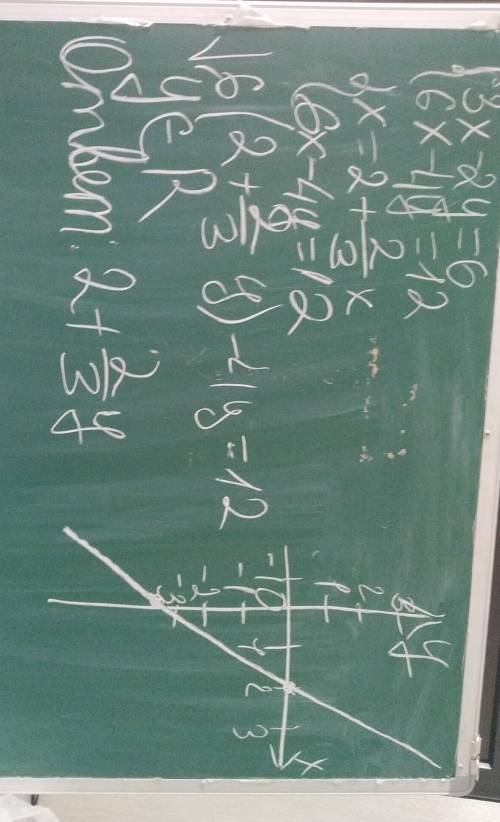 3x-2y=6
6x-4y=12
x=2+2/3 x
6x-4y=12
6(2+2/3 y)-4y=12
y∈R
Ответ: 2+2/3 y
y
3
2
1
-1 0 1 2 3 x
-1
-2
-3